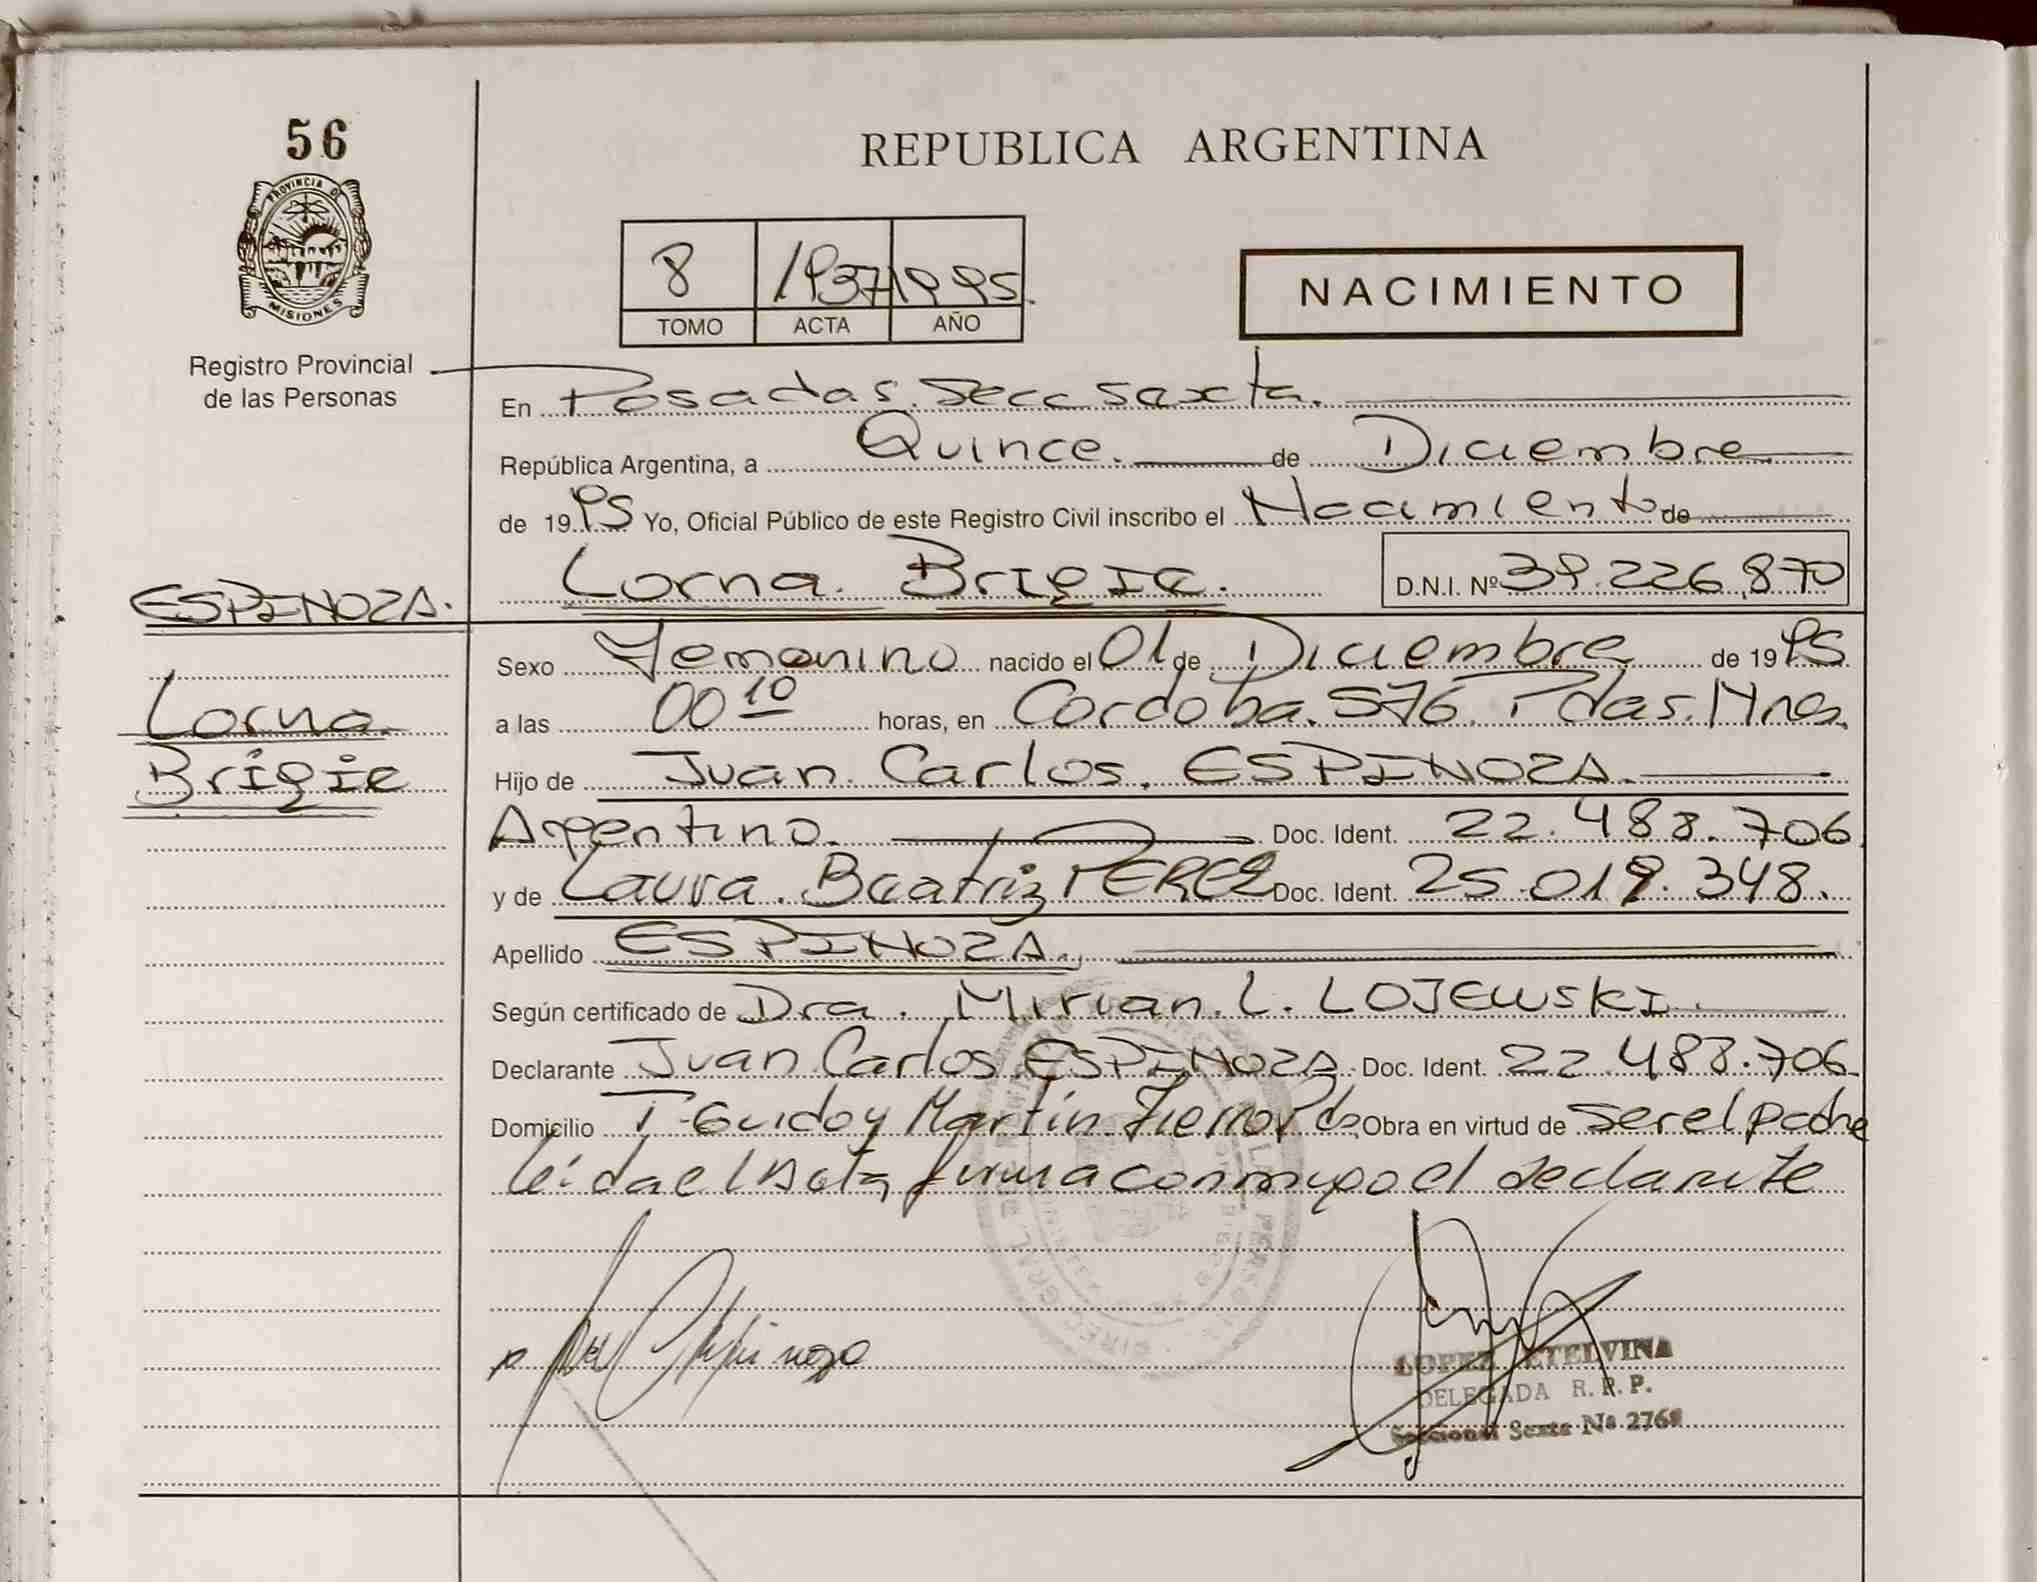 56
PROVINCIA DE
MISIONES
Registro Provincial
de las Personas
REPUBLICA ARGENTINA
8 1937 1995.
TOMO ACTA AÑO
NACIMIENTO
En Posadas. Secc sexta.
República Argentina, a Quince. de Diciembre
de 1995 Yo, Oficial Público de este Registro Civil inscribo el Nacimiento de
Lorna. Brigie. D.N.I. Nº 39.226.870
ESPINOZA.
Lorna
Brigie
Sexo Femenino nacido el 01 de Diciembre de 1995
a las 00 10 horas, en Cordoba. 576. Pdas. Mnes.
Hijo de Juan. Carlos. ESPINOZA.
Argentino. Doc. Ident. 22.488.706
y de Laura. Beatriz PEREZ Doc. Ident. 25.019.348.
Apellido ESPINOZA.
Según certificado de Dra. Mirian. L. LOJEWSKI.
Declarante Juan Carlos ESPINOZA Doc. Ident. 22.488.706
Domicilio T. Guido y Martín Fierro Pdas Obra en virtud de ser el padre
leída el Acta, firma conmigo el declarante
LOPEZ ETELVINA
DELEGADA R.R.P.
Seccional Sexta Nº 2768